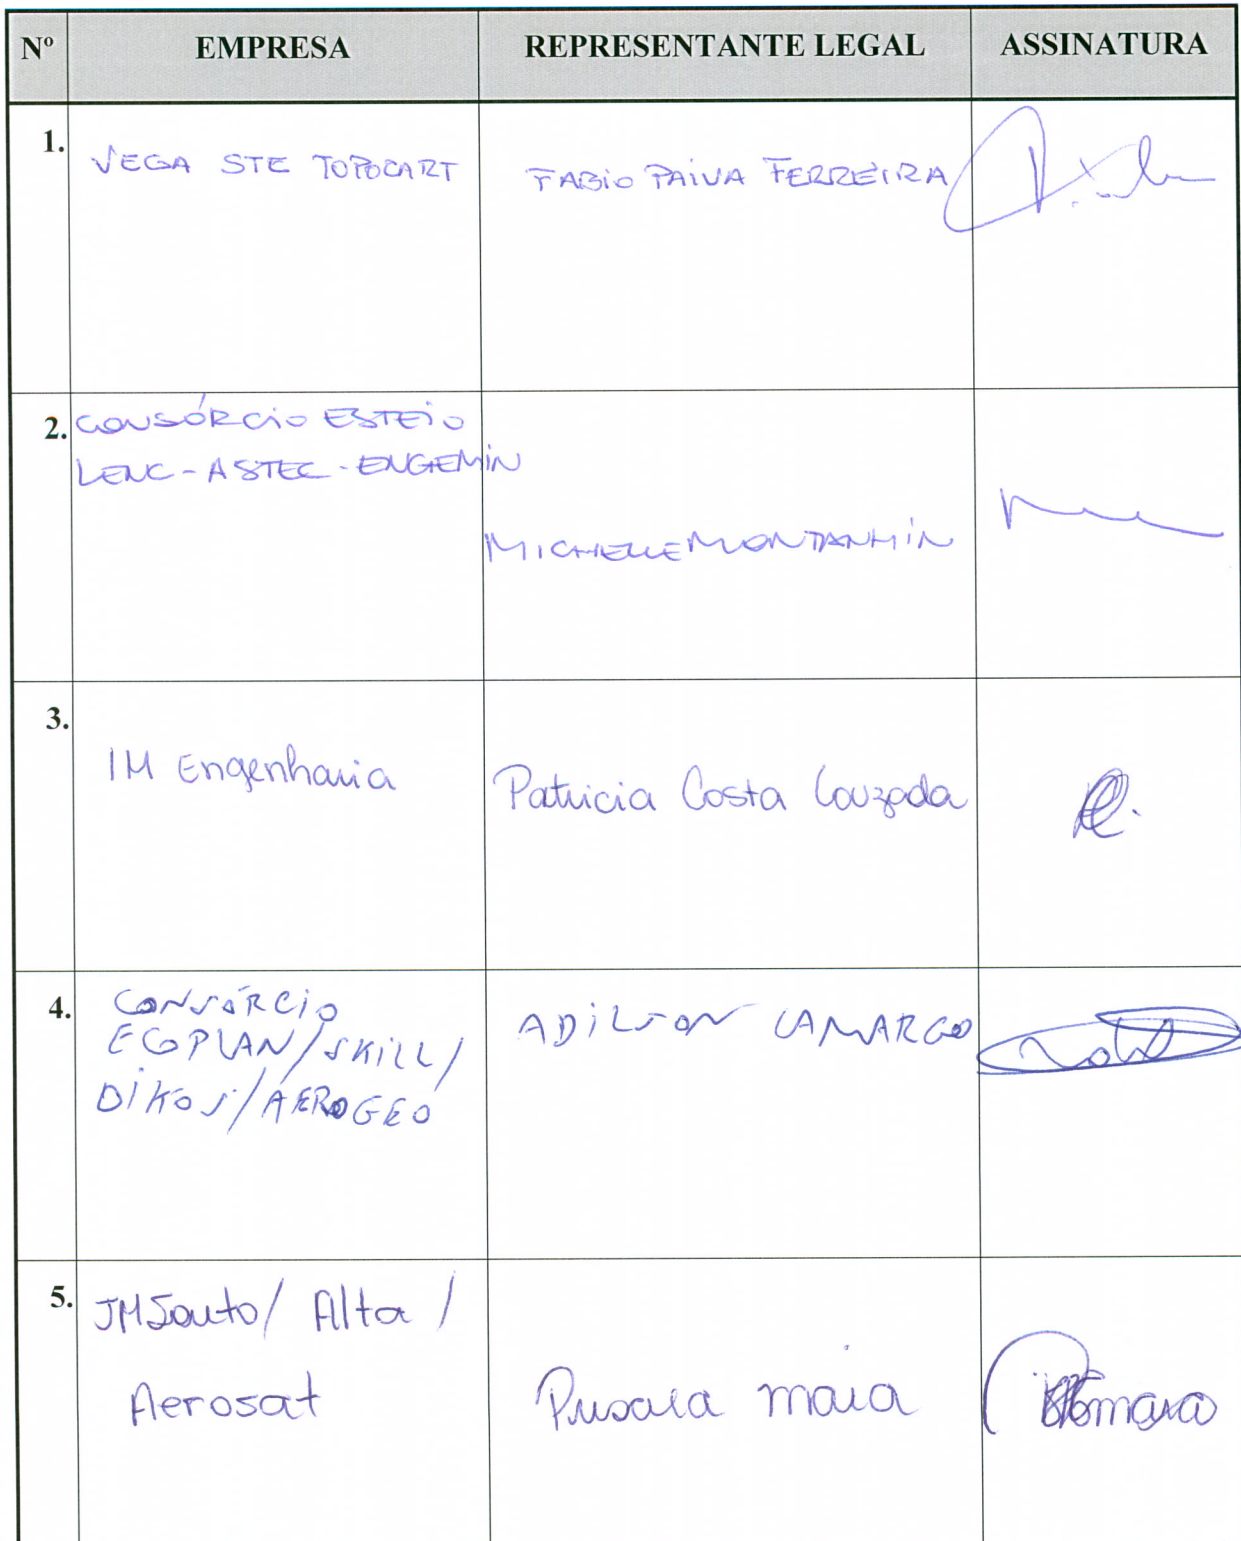 Nº EMPRESA REPRESENTANTE LEGAL ASSINATURA
1. VEGA STE TOPOCART FABIO PAIVA FERREIRA
2. CONSÓRCIO ESTEIO
LENC-ASTEC-ENGEMIN
MICHELLE MONTANHIN
3. IM Engenharia Patricia Costa Louzada
4. CONSÓRCIO ADILSON CAMARGO
EGOPLAN/SKILL/
DIKOS/AEROGEO
5. JMSouto/ Alta /
Aerosat maia